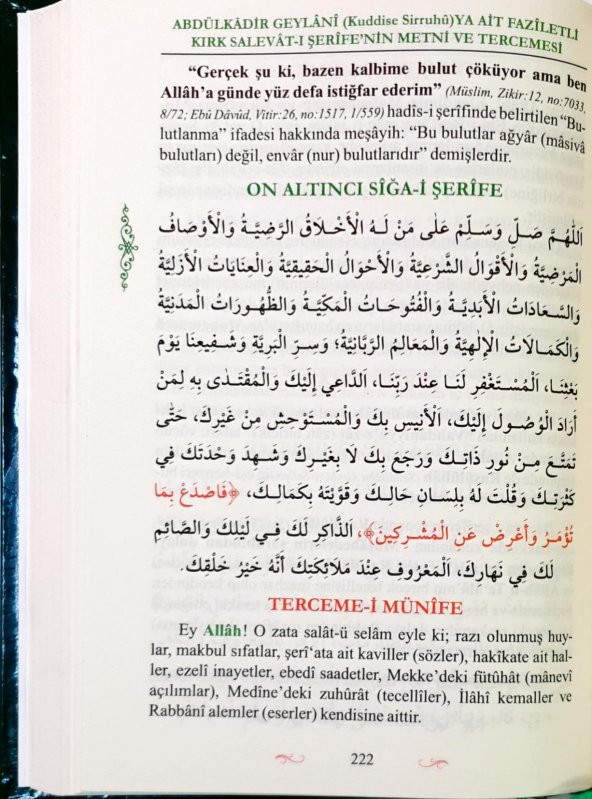 ABDÜLKÂDİR GEYLÂNÎ (Kuddise Sirruhû)YA AİT FAZÎLETLİ
KIRK SALEVÂT-I ŞERÎFE’NİN METNİ VE TERCEMESİ
“Gerçek şu ki, bazen kalbime bulut çöküyor ama ben
Allâh’a günde yüz defa istiğfar ederim” (Müslim, Zikir:12, no:7033,
8/72; Ebû Dâvûd, Vitir:26, no:1517, 1/559) hadîs-i şerîfinde belirtilen “Bu-
lutlanma” ifadesi hakkında meşâyih: “Bu bulutlar ağyâr (mâsivâ
bulutları) değil, envâr (nur) bulutlarıdır” demişlerdir.
ON ALTINCI SÎĞA-İ ŞERÎFE
اَللّٰهُمَّ صَلِّ وَسَلِّمْ عَلٰى مَنْ لَهُ الْأَخْلَاقُ الرَّضِيَّةُ وَالْأَوْصَافُ
الْمَرْضِيَّةُ وَالْأَقْوَالُ الشَّرْعِيَّةُ وَالْأَحْوَالُ الْحَقِيقِيَّةُ وَالْعِنَايَاتُ الْأَزَلِيَّةُ
وَالسَّعَادَاتُ الْأَبَدِيَّةُ وَالْفُتُوحَاتُ الْمَكِّيَّةُ وَالظُّهُورَاتُ الْمَدَنِيَّةُ
وَالْكَمَالَاتُ الْإِلٰهِيَّةُ وَالْمَعَالِمُ الرَّبَّانِيَّةُ؛ وَسِرِّ الْبَرِيَّةِ وَشَفِيعِنَا يَوْمَ
بَعْثِنَا، اَلْمُسْتَغْفِرِ لَنَا عِنْدَ رَبِّنَا، اَلدَّاعِي إِلَيْكَ وَالْمُقْتَدٰى بِهِ لِمَنْ
أَرَادَ الْوُصُولَ إِلَيْكَ، اَلْأَنِيسِ بِكَ وَالْمُسْتَوْحِشِ مِنْ غَيْرِكَ، حَتّٰى
تَمَتَّعَ مِنْ نُورِ ذَاتِكَ وَرَجَعَ بِكَ لَا بِغَيْرِكَ وَشَهِدَ وَحْدَتَكَ فِي
كَثْرَتِكَ وَقُلْتَ لَهُ بِلِسَانِ حَالِكَ وَقَوَّيْتَهُ بِكَمَالِكَ، ﴿فَاصْدَعْ بِمَا
تُؤْمَرُ وَأَعْرِضْ عَنِ الْمُشْرِكِينَ﴾، اَلذَّاكِرِ لَكَ فِي لَيْلِكَ وَالصَّائِمِ
لَكَ فِي نَهَارِكَ، اَلْمَعْرُوفِ عِنْدَ مَلَائِكَتِكَ أَنَّهُ خَيْرُ خَلْقِكَ.
TERCEME-İ MÜNÎFE
Ey Allâh! O zata salât-ü selâm eyle ki; razı olunmuş huy-
lar, makbul sıfatlar, şerî‘ata ait kaviller (sözler), hakîkate ait hal-
ler, ezelî inayetler, ebedî saadetler, Mekke’deki fütûhât (mânevî
açılımlar), Medîne’deki zuhûrât (tecellîler), İlâhî kemaller ve
Rabbânî alemler (eserler) kendisine aittir.
222